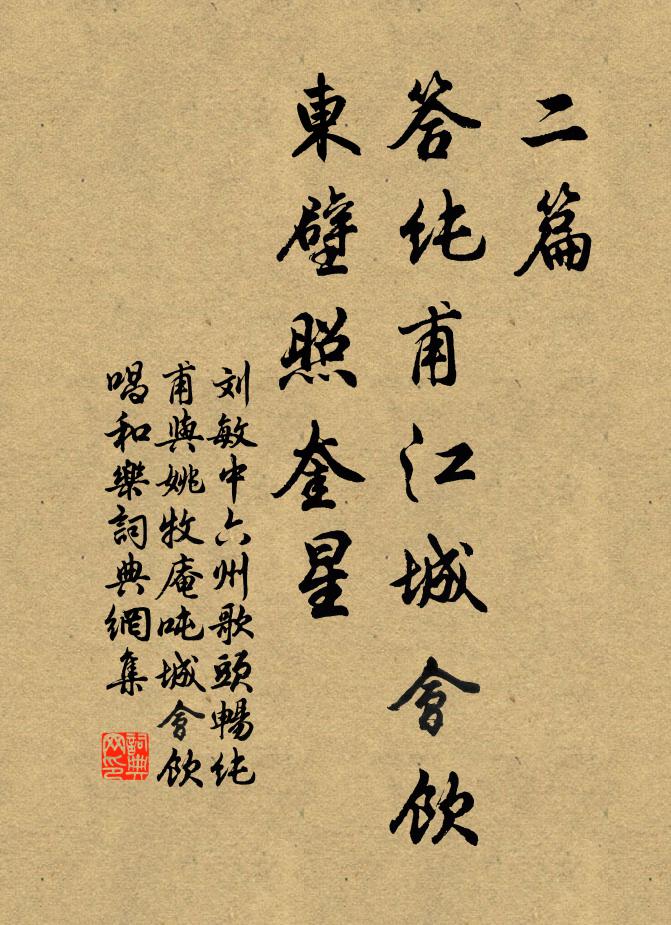 二篇
答纯甫江城會飲
東壁照奎星
刘敏中六州歌頭暢纯
甫與姚牧庵吨城會飲
唱和樂詞典網集
詞典
网印